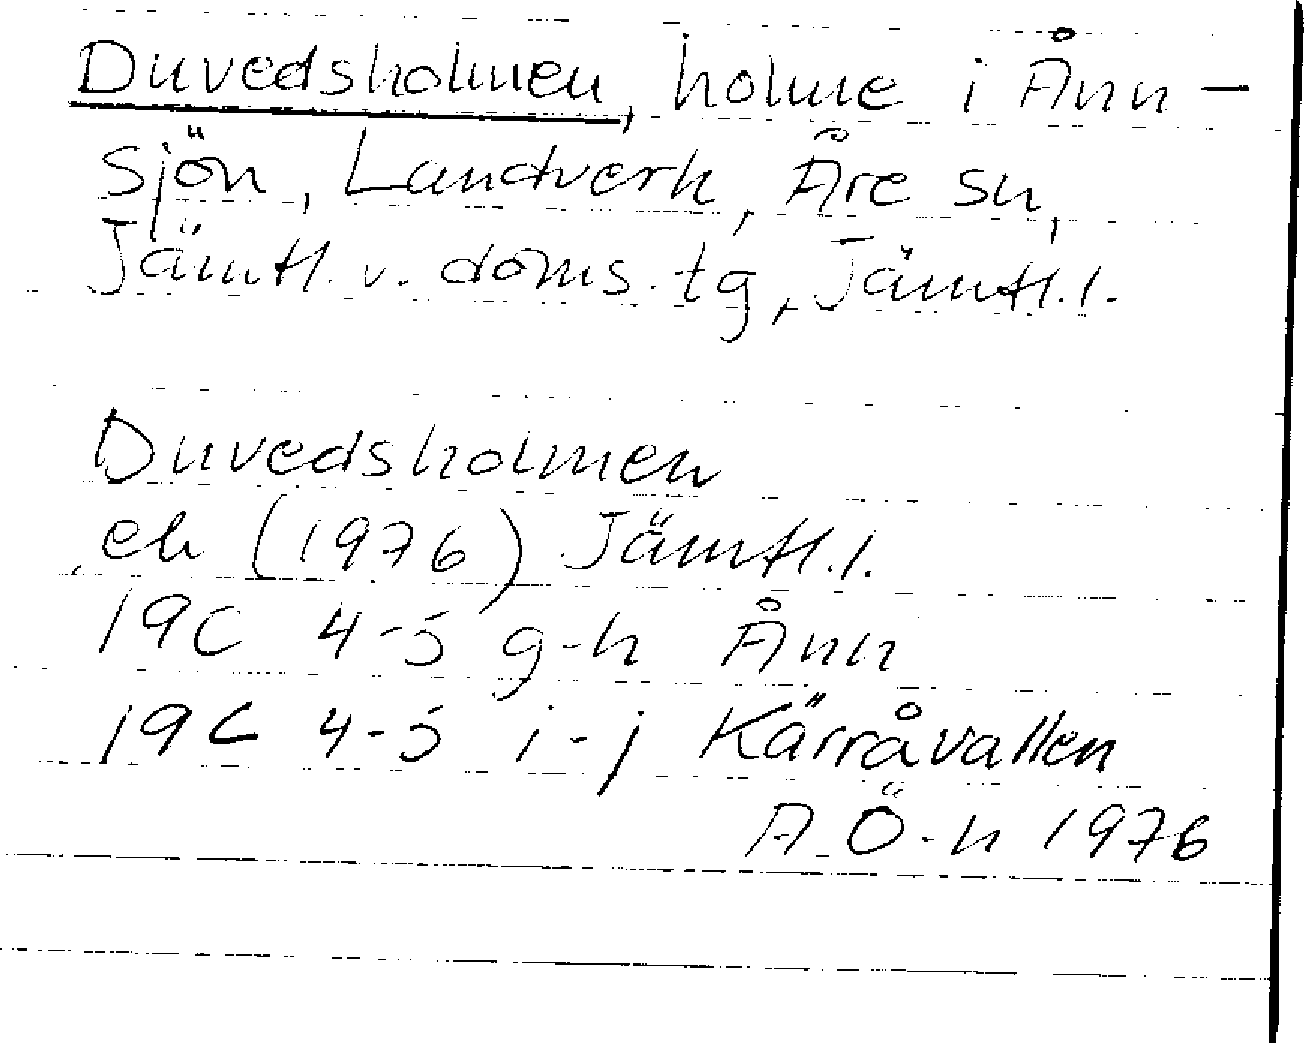 Duvedsholmen, holme i Ånn-
sjön, Landverk, Åre sn,
Jämtl. v. doms. tg, Jämtl. l.
Duvedsholmen
ek (1976) Jämtl. l.
19C 4-5 g-h Ånn
19C 4-5 i-j Kärråvallen
A Ö-n 1976